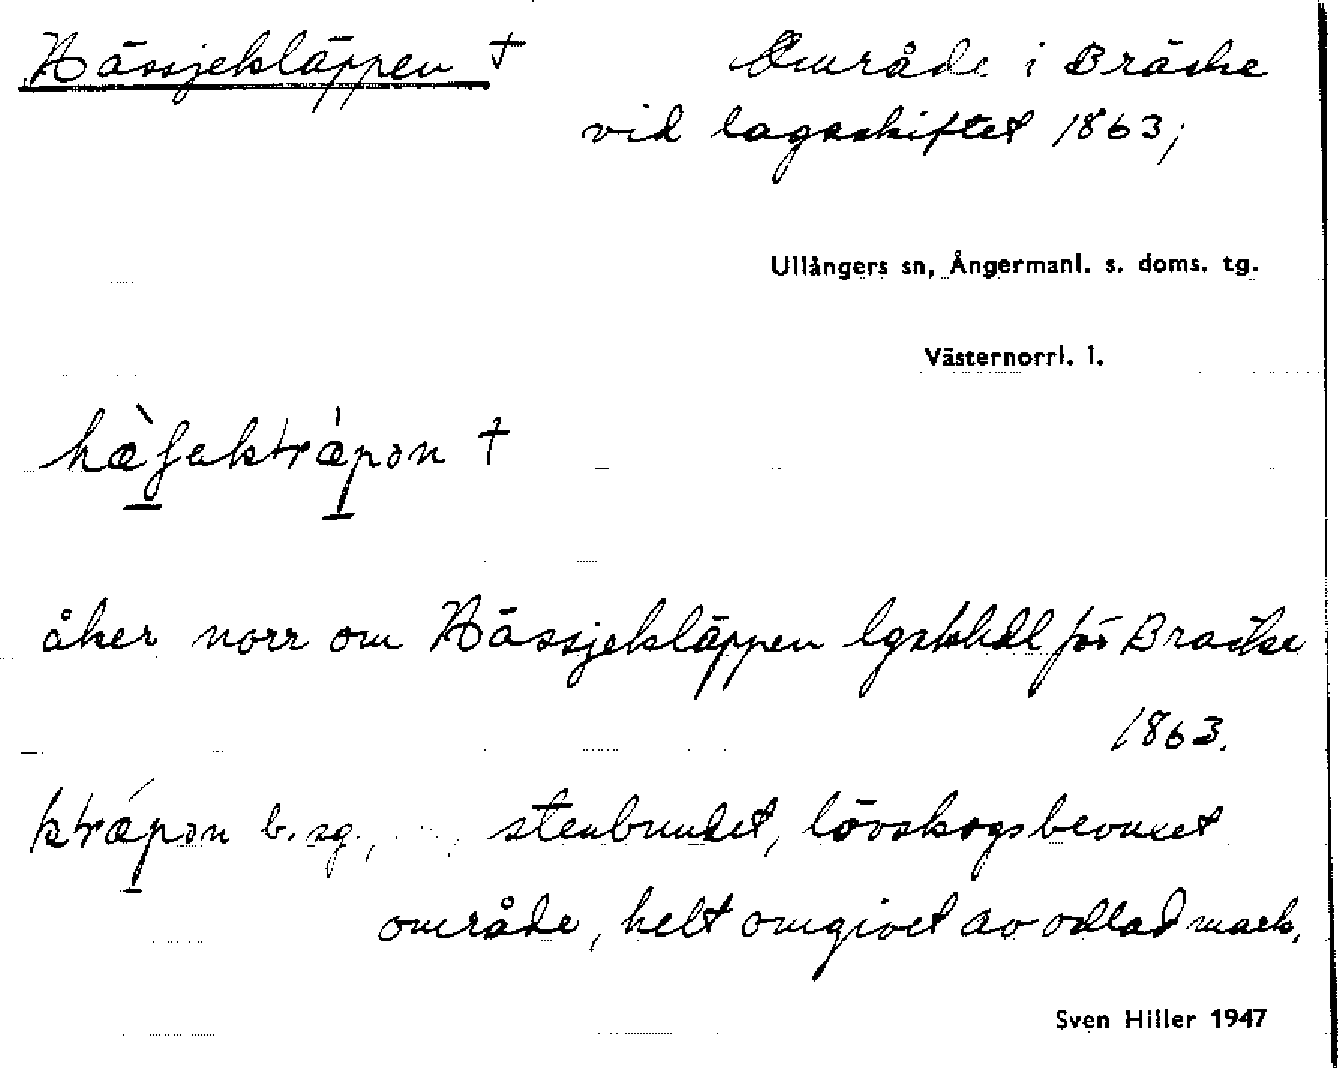 Hässjekläppen † Område i Bräcke
vid lagaskiftet 1863;
Ullångers sn, Ångermanl. s. doms. tg.
Västernorrl. l.
†
åker norr om Hässjekläppen lgskhdl för Bräcke
1863.
b. sg., stenbundet, lövskogsbevuxet
område, helt omgivet av odlad mark.
Sven Hiller 1947